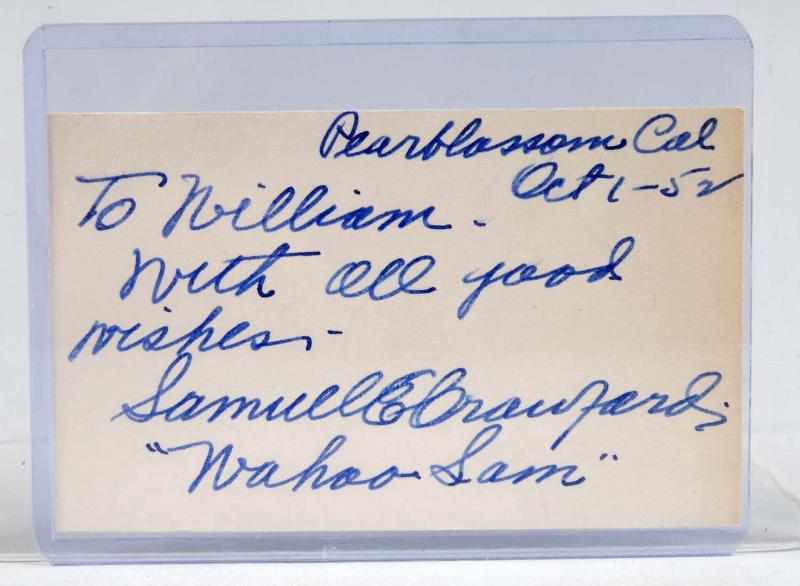 Pearblossom Cal
Oct 1-52
To William.
With all good
wishes,-
Samuel E Crawford,
"Wahoo Sam"